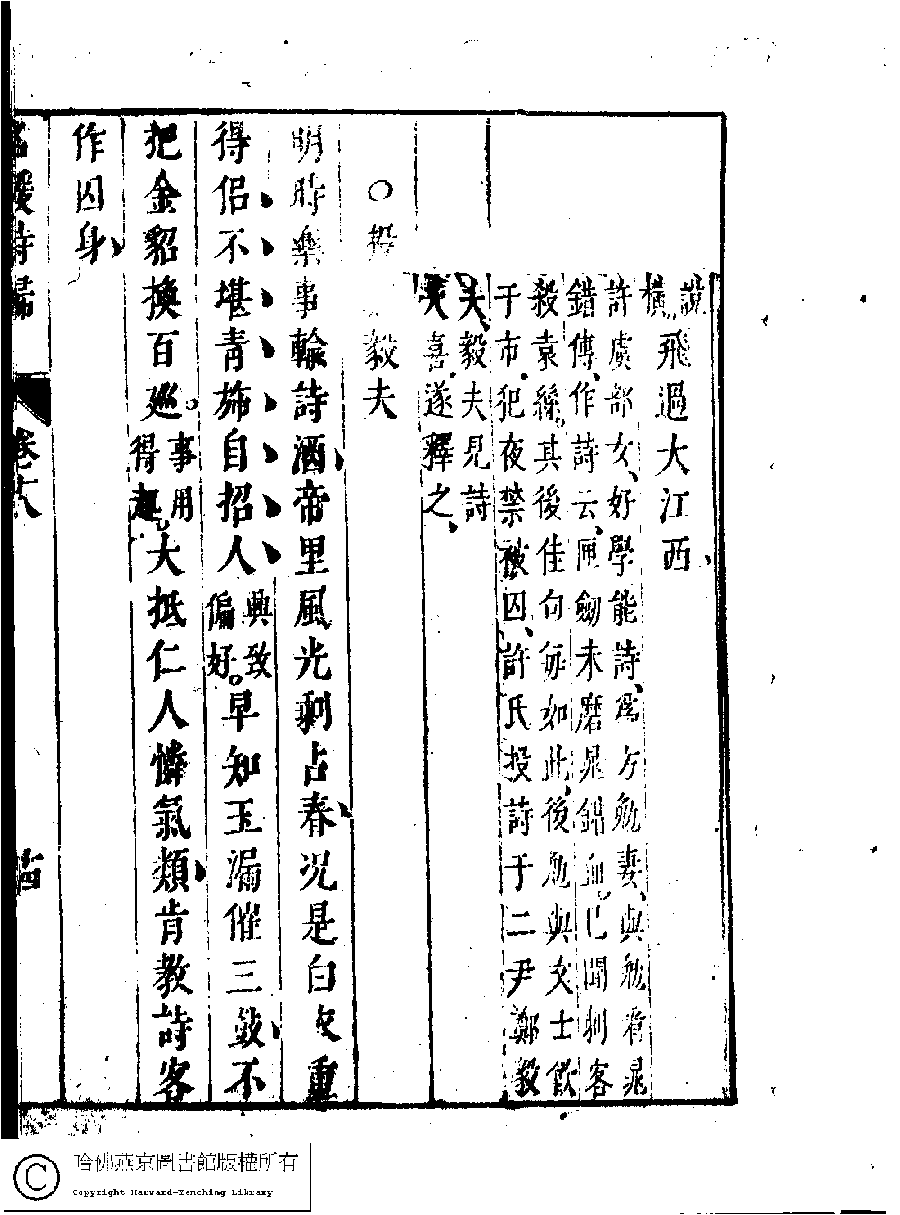 橫飛過大江西
許虞部女、好學能詩、爲方勉妻、與勉看晁
錯傳、作詩云、匣劒未磨晁錯血。已聞刺客
殺袁絲。其後佳句每如此、後勉與文士飲
于市、犯夜禁被囚、許氏投詩于二尹鄭毅
夫、毅夫見詩
大喜、遂釋之、
○投 毅夫
明時樂事輸詩酒帝里風光剩占春況是白衣重
得侶不堪青旆自招人興致偏好。早知玉漏催三鼓不
把金貂換百巡。事用得趣。大抵仁人憐氣類肯教詩客
作囚身
名媛詩歸 卷十八 十四
哈佛燕京圖書館版權所有
Copyright Harvard-Yenching Library